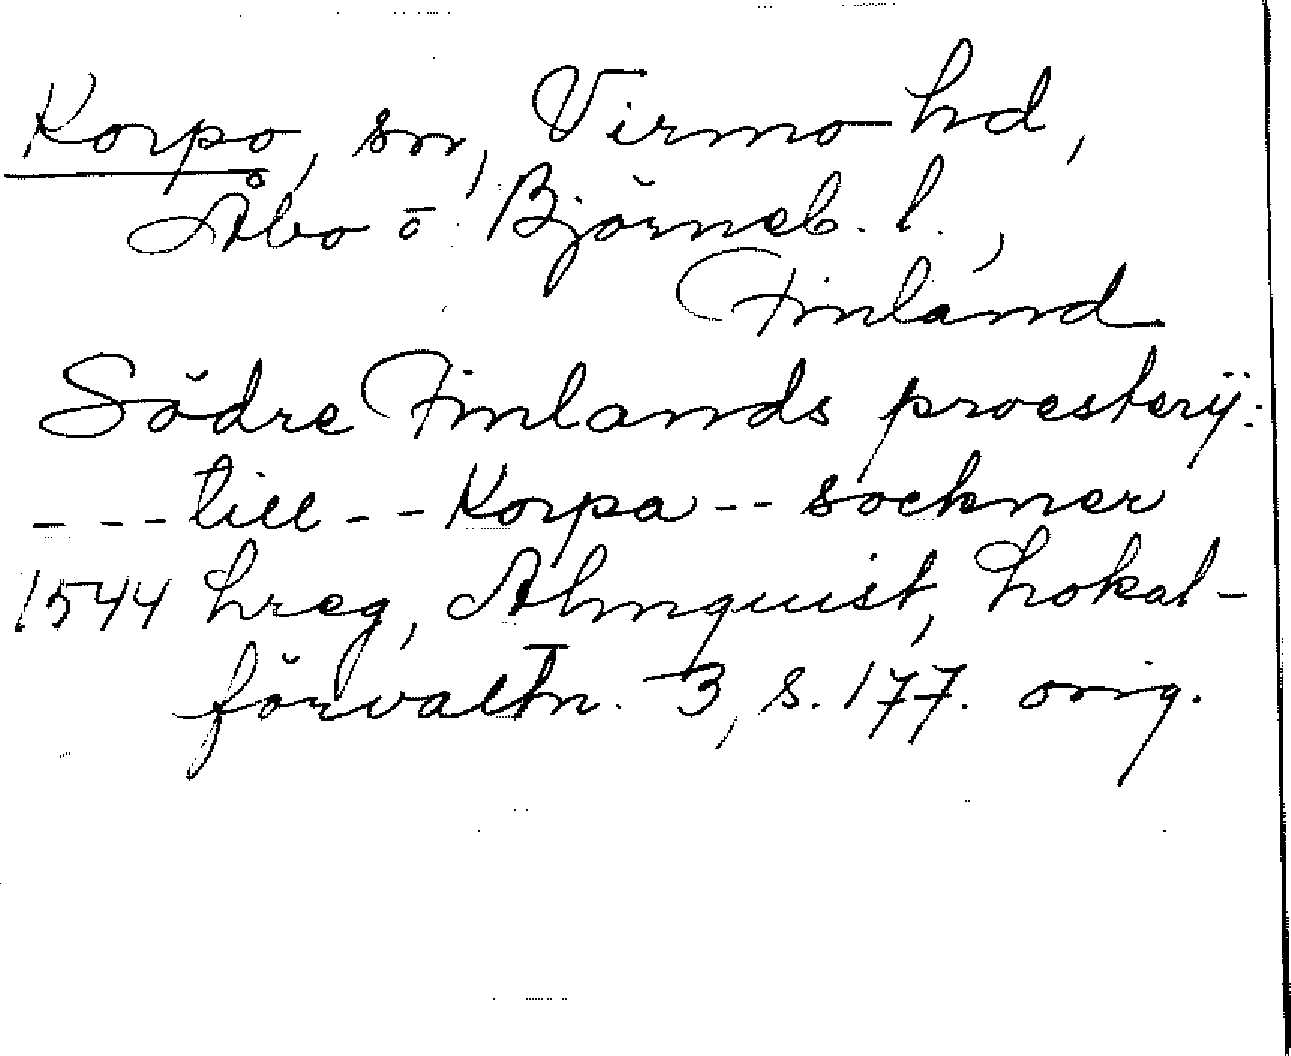 Korpo, sn, Virmo hd,
Åbo ō. Björneb. l.,
Finland
Södre Finlands proesterij:
- - - till - - Korpa - - sockner
1544 hreg, Almquist, Lokal-
förvaltn. 3, s. 177. orig.